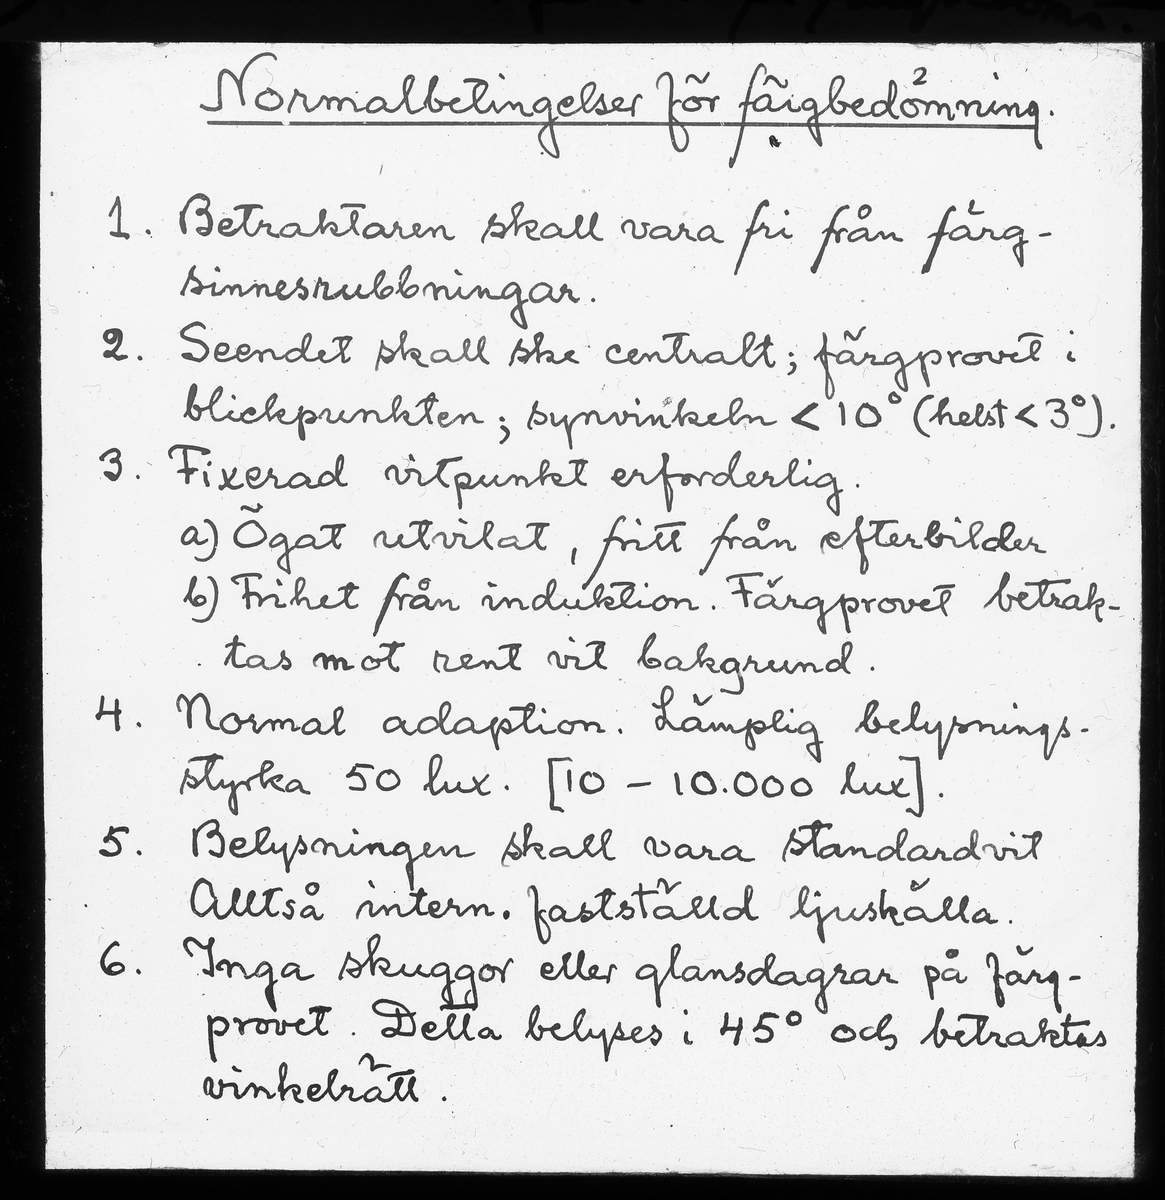 Normalbetingelser för färgbedömning.
1. Betraktaren skall vara fri från färg-
sinnesrubbningar.
2. Seendet skall ske centralt; färgprovet i
blickpunkten; synvinkeln < 10° (helst < 3°).
3. Fixerad vitpunkt erforderlig.
a) Ögat utvilat, fritt från efterbilder
b) Frihet från induktion. Färgprovet betrak-
tas mot rent vit bakgrund.
4. Normal adaption. Lämplig belysnings-
styrka 50 lux. [10 – 10.000 lux].
5. Belysningen skall vara standardvit
Alltså intern. fastställd ljuskälla.
6. Inga skuggor eller glansdagrar på färg-
provet. Detta belyses i 45° och betraktas
vinkelrätt.